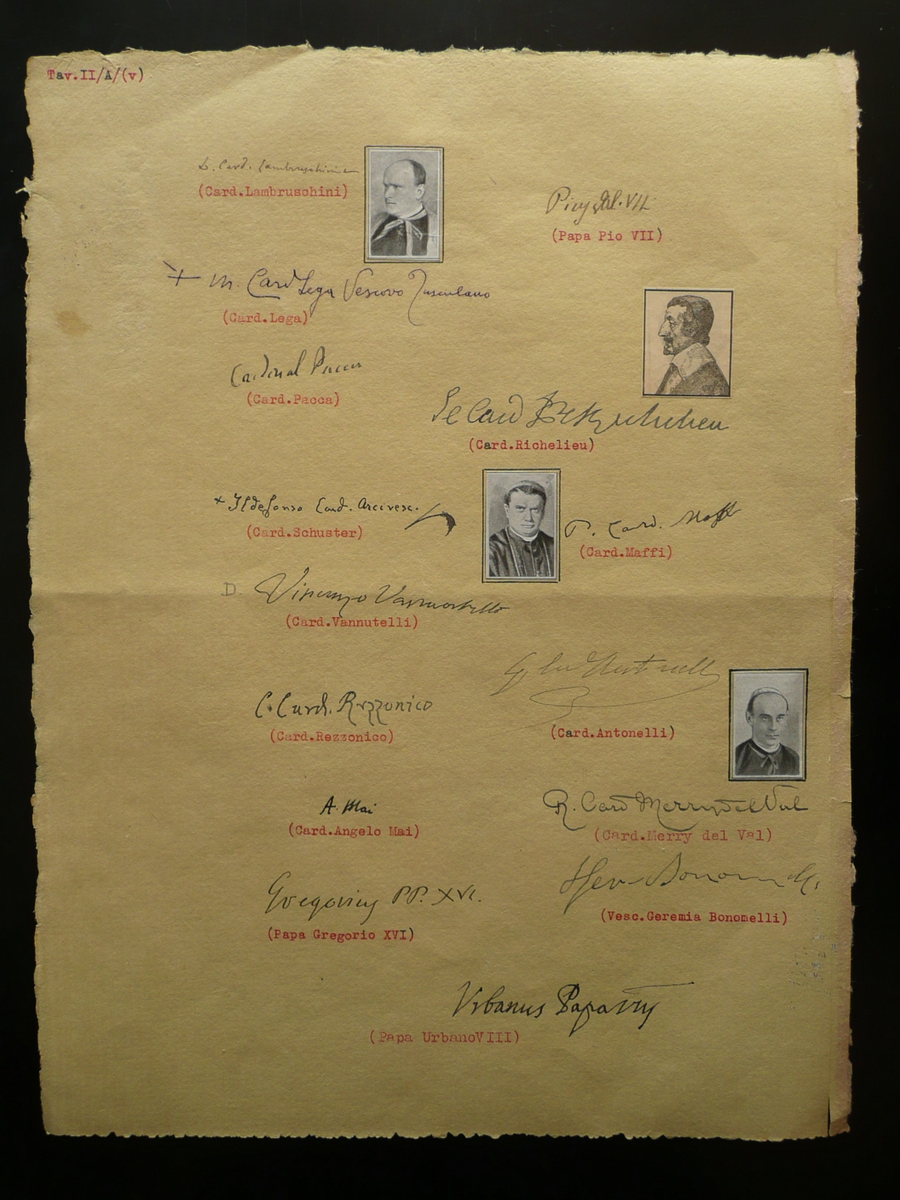 Tav.II/A/(v)
L. Card. Lambruschini
(Card.Lambruschini)
Pius VII
(Papa Pio VII)
+ M. Card Lega Vescovo Tusculano
(Card.Lega)
Cardinal Pacca
(Card.Pacca)
Le Card De Richelieu
(Card.Richelieu)
+ Ildefonso Card. Arcivesc.
(Card.Schuster)
P. Card. Maffi
(Card.Maffi)
D. Vincenzo Vannutelli
(Card.Vannutelli)
Antonelli
(Card.Antonelli)
C. Card. Rezzonico
(Card.Rezzonico)
A. Mai
(Card.Angelo Mai)
R. Card Merry del Val
(Card.Merry del Val)
Gregorius PP. XVI.
(Papa Gregorio XVI)
Bonomelli
(Vesc.Geremia Bonomelli)
Urbanus Papa VIII
(Papa UrbanoVIII)